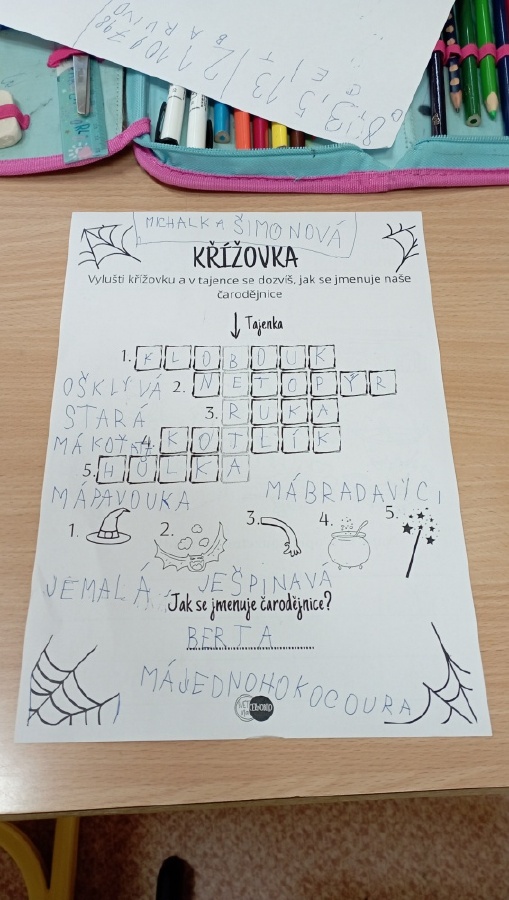 MICHALKA ŠIMONOVÁ
KŘÍŽOVKA
Vylušti křížovku a v tajence se dozvíš, jak se jmenuje naše
čarodějnice
Tajenka
1. KLOBOUK
OŠKLYVÁ 2. NETOPÝR
STARÁ 3. RUKA
4. KOTLÍK
5. HŮLKA
MÁPAVOUKA MÁBRADAVYCI
1. 2. 3. 4. 5.
JEMALÁ JEŠPINAVÁ
Jak se jmenuje čarodějnice?
BERTA
MÁJEDNOHOKOCOURA